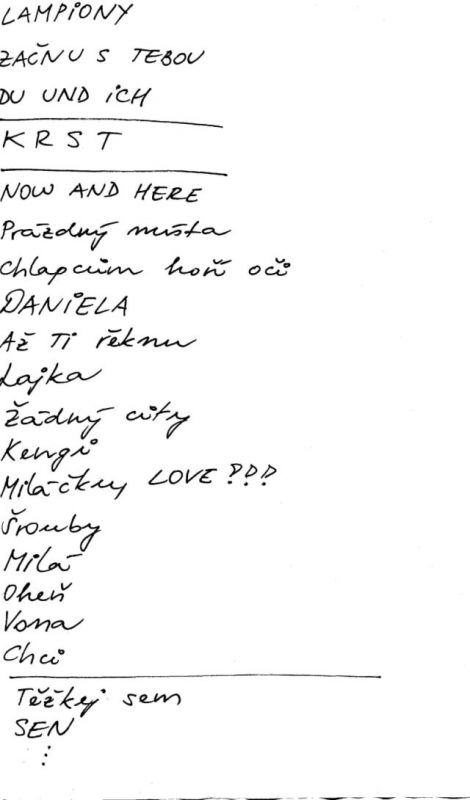 LAMPIONY
ZAČNU S TEBOU
DU UND ICH
KRST
NOW AND HERE
Prázdný místa
Chlapcům hoří oči
DANIELA
Až Ti řeknu
Lajka
Žádný city
Kengi
Miláčku LOVE???
Šrouby
Milá
Oheň
Vona
Chci
Těžkej sem
SEN
⋮